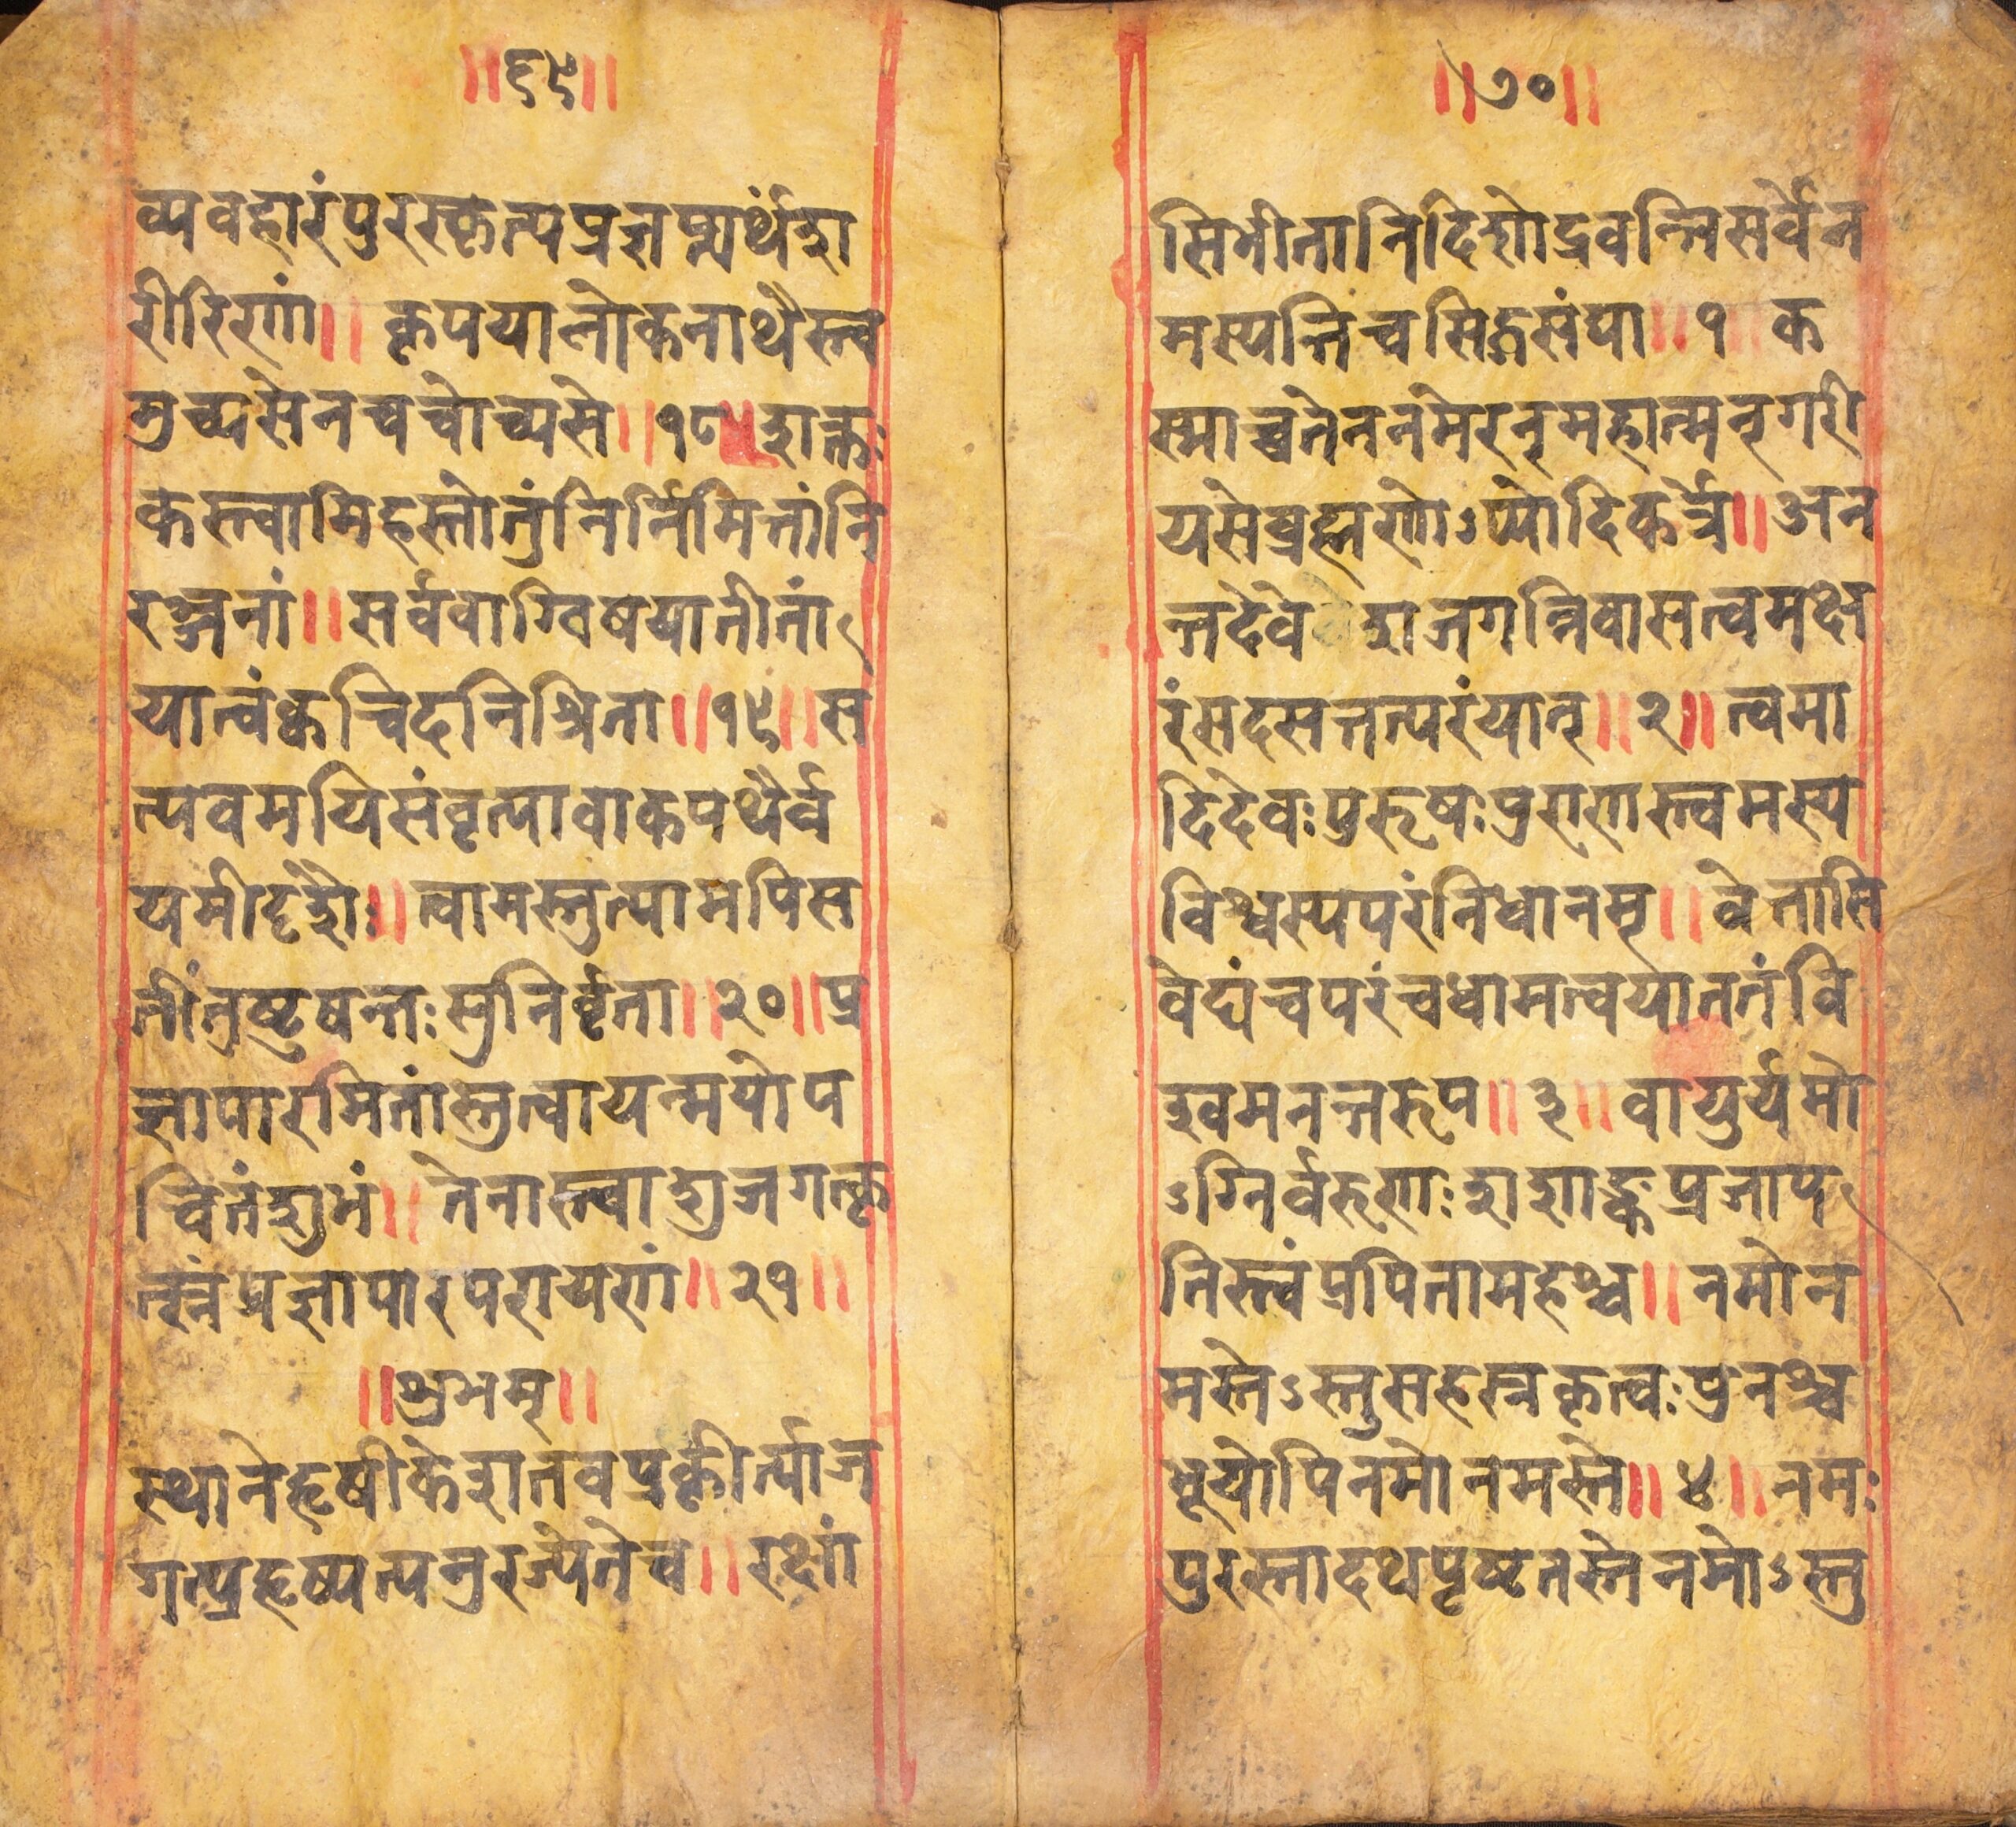 ॥६९॥
व्यवहारंपुरस्कृत्यप्रज्ञप्त्यर्थंशा
रीरिणां॥ कृपयालोकनाथैस्त्व
मुच्यसेनचचोच्यसे॥१८॥शक्तः
कस्त्वामिहस्तोतुंनिर्निमित्तांनि
रञ्जनां॥सर्ववाग्विषयातीतां
यात्वंक्वचिदनिश्रिता॥१९॥स
त्यवमयिसंवृत्यावाकपथैर्व
यमीदृशैः॥त्वामस्तुत्यामपिस
तींतुष्टुषन्तःसुनिर्वृता॥२०॥प्र
ज्ञापारमितांस्तुत्वायन्मयोप
चितंशुभं॥ तेनास्त्वाशुजगत्कृ
त्स्नंप्रज्ञापारपरायणं॥२१॥
॥शुभम्॥
स्थानेहृषीकेशतवप्रकीर्त्याज
गत्प्रहृष्यत्यनुरज्यतेच॥ रक्षां
॥७०॥
सिभीतानिदिशोद्रवन्तिसर्वेन
मस्यन्तिचसिद्धसंघा॥१॥क
स्माच्चतेननमेरन्महात्मन्गरी
यसेब्रह्मणोऽप्यादिकर्त्रे॥अन
न्तदेवेशजगन्निवासत्वमक्ष
रंसदसत्तत्परंयात्॥२॥त्वमा
दिदेवःपुरुषःपुराणस्त्वमस्य
विश्वस्यपरंनिधानम्॥वेत्तासि
वेद्यंचपरंचधामत्वयाततंवि
श्वमनन्तरूप॥३॥वायुर्यमो
ऽग्निर्वरुणःशशाङ्कप्रजाप
तिस्त्वंप्रपितामहश्च॥नमोन
मस्तेऽस्तुसहस्रकृत्वःपुनश्च
भूयोपिनमोनमस्ते॥४॥नमः
पुरस्तादथपृष्टतस्तेनमोऽस्तु